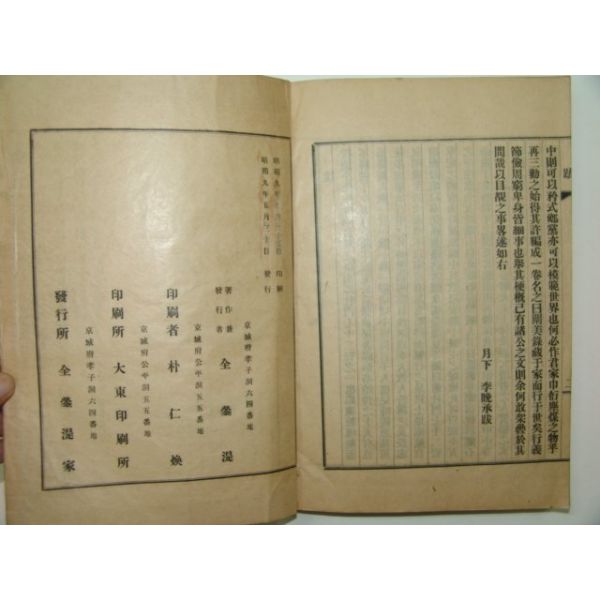 中則可以矜式鄕黨亦可以模範世界也何必作君家巾衍塵煤之物乎
再三勸之始得其許編成一卷名之曰
美錄藏于家而行于世矣行義
節儉周窮卑身皆細事也擧其梗槪已有諸公之文則余何敢架疊於其
間哉以目覩之事畧述如右
月下 李晩承跋
昭和九年 月 日 印刷
昭和九年 月 十日 發行
京城府孝子洞六四番地
著作兼
發行者 全 湜
京城府公平洞五五番地
印刷者 朴仁煥
京城府公平洞五五番地
印刷所 大東印刷所
京城府孝子洞六四番地
發行所 全 湜家